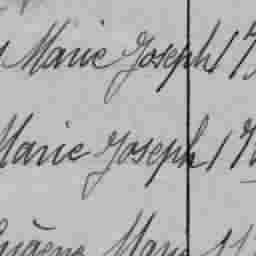 Marie Joseph 1
Marie Joseph 1
Eugène Marie 11